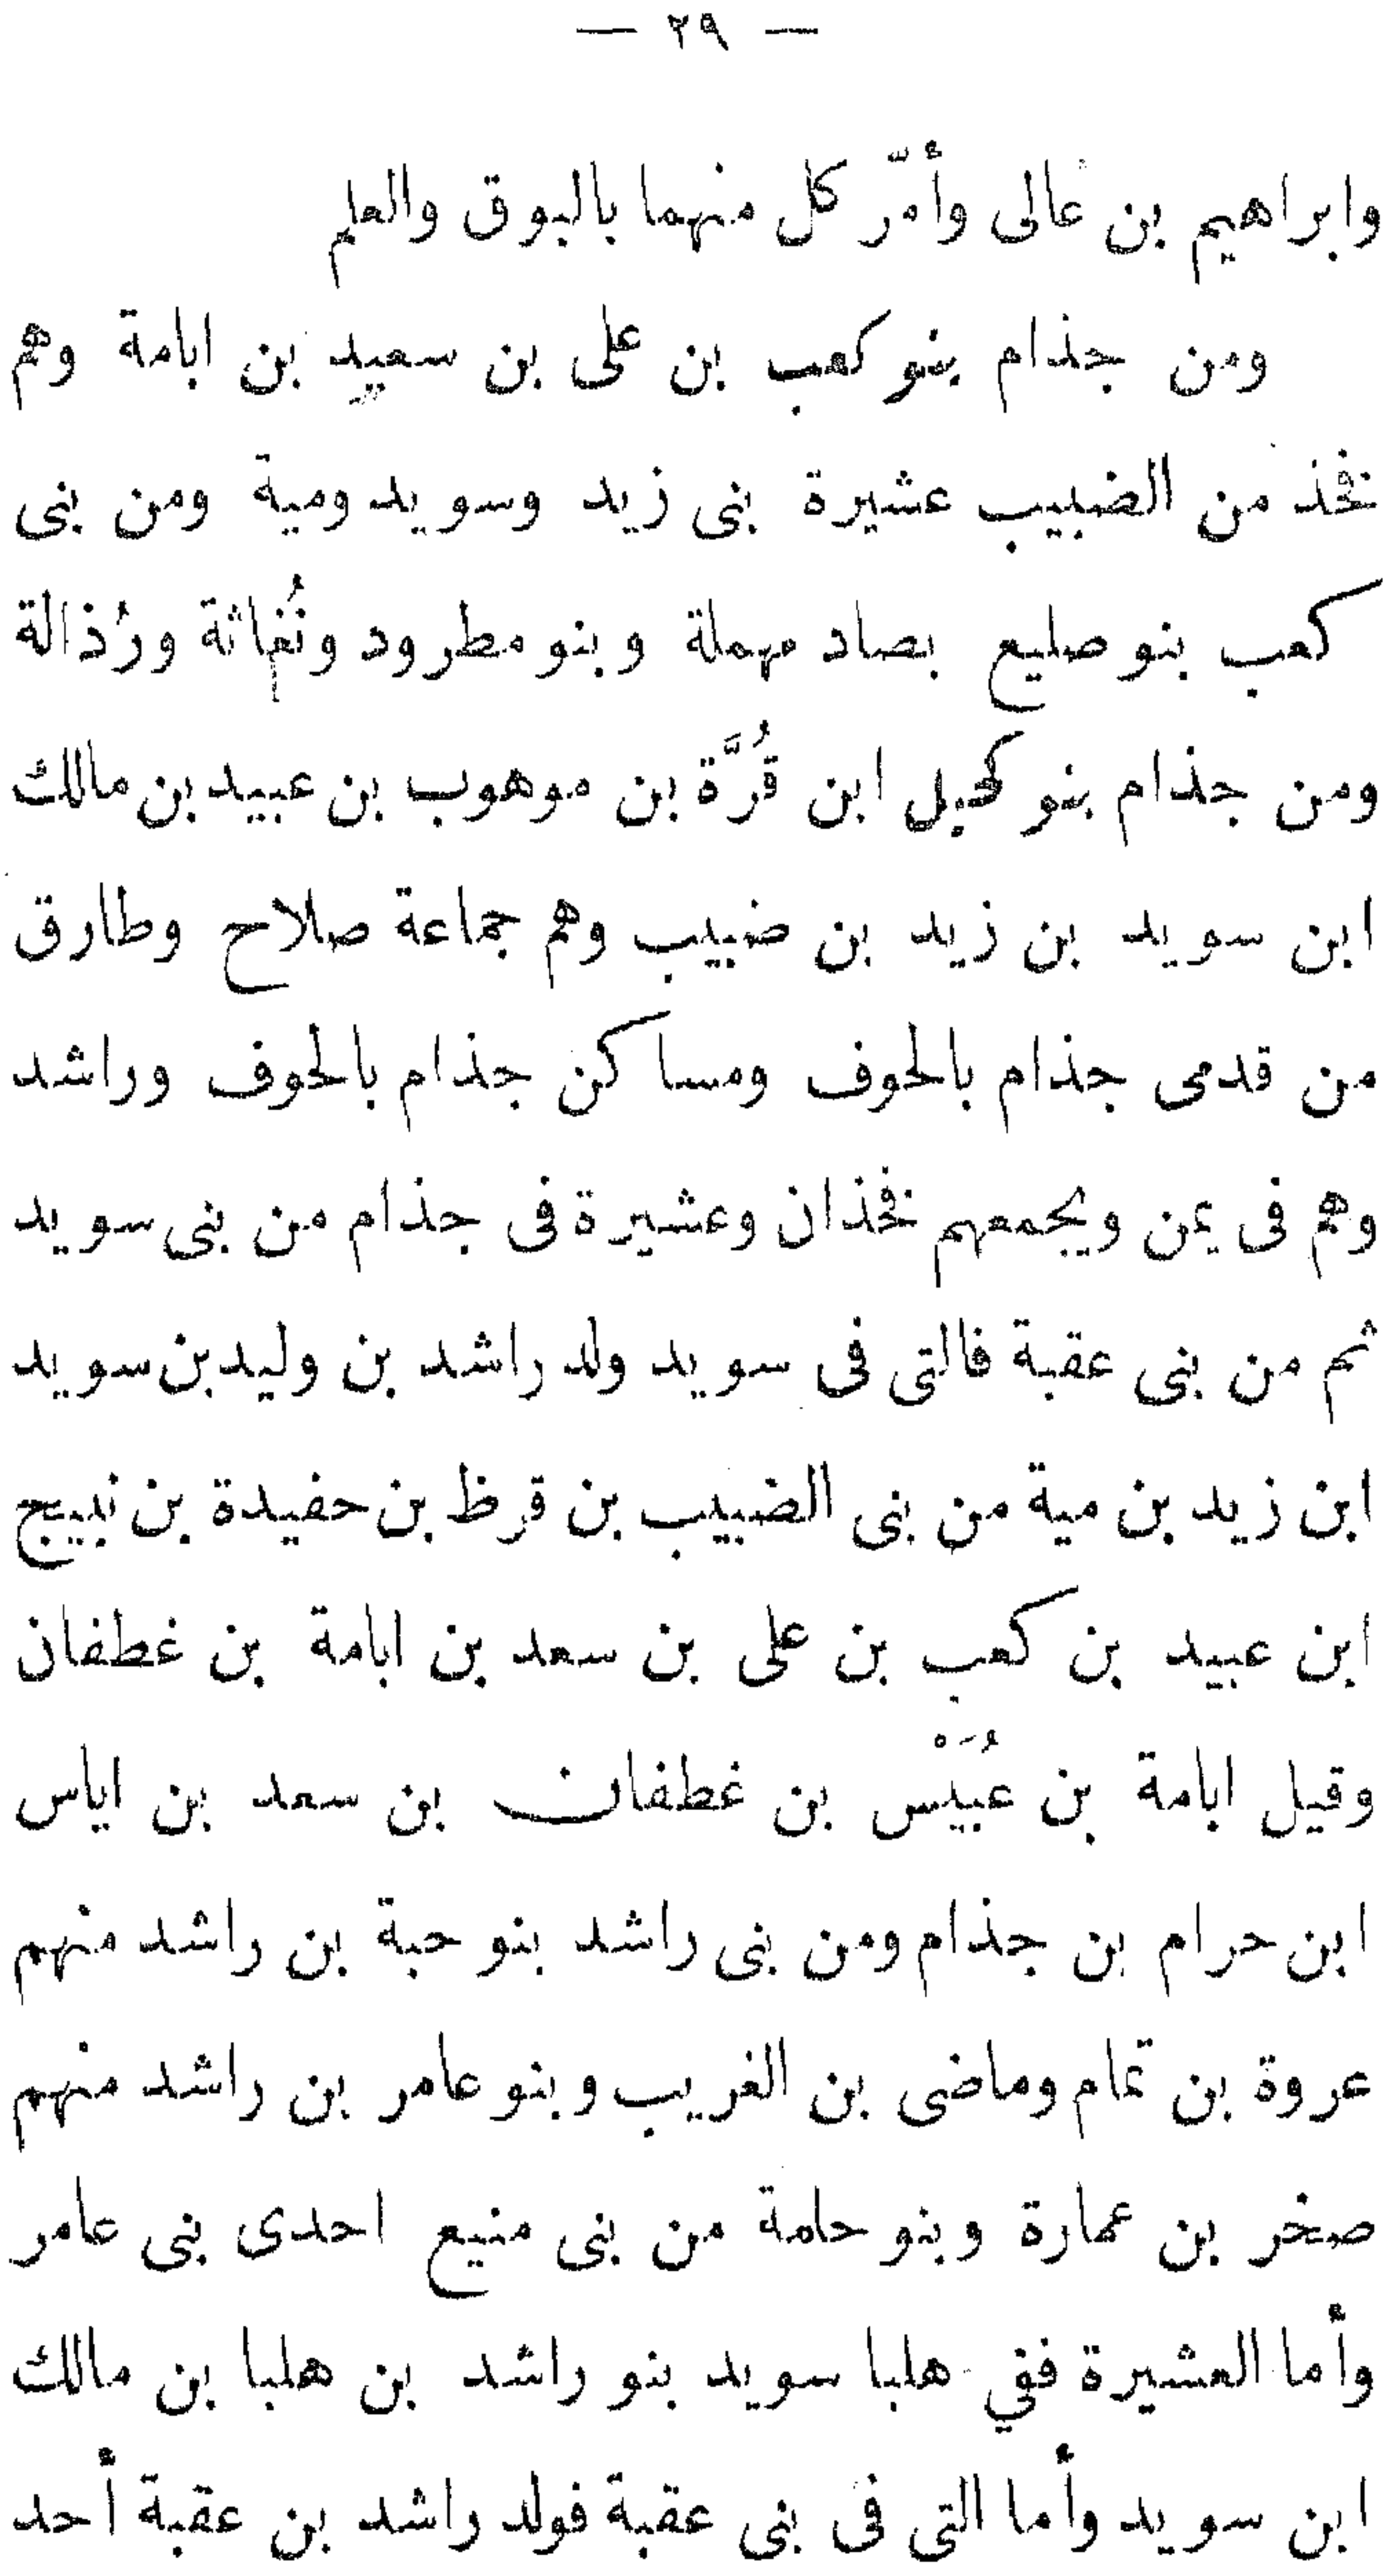 — ٢٩ —
وابراهيم بن عالى وأمّر كل منهما بالبوق والعلم
ومن جذام بنو كعب بن على بن سعيد بن ابامة وهم
فخذ من الضبيب عشيرة بنى زيد وسويد ومية ومن بنى
كعب بنو صليع بصاد مهملة وبنو مطرود ونُفاثة ورُذالة
ومن جذام بنو كحيل ابن قُرَّة بن موهوب بن عبيد بن مالك
ابن سويد بن زيد بن ضبيب وهم جماعة صلاح وطارق
من قدمى جذام بالحوف ومساكن جذام بالحوف وراشد
وهم فى يمن ويجمعهم فخذان وعشيرة فى جذام من بنى سويد
ثم من بنى عقبة فالتى فى سويد ولد راشد بن وليد بن سويد
ابن زيد بن مية من بنى الضبيب بن قرظ بن حفيدة بن نبيج
ابن عبيد بن كعب بن على بن سعد بن ابامة بن غطفان
وقيل ابامة بن عُبَيْس بن غطفان بن سعد بن اياس
ابن حرام بن جذام ومن بنى راشد بنو حبة بن راشد منهم
عروة بن تمام وماضى بن الغريب وبنو عامر بن راشد منهم
صخر بن عمارة وبنو حامة من بنى منيع احدى بنى عامر
وأما العشيرة ففي هلبا سويد بنو راشد بن هلبا بن مالك
ابن سويد وأما التى فى بنى عقبة فولد راشد بن عقبة أحد